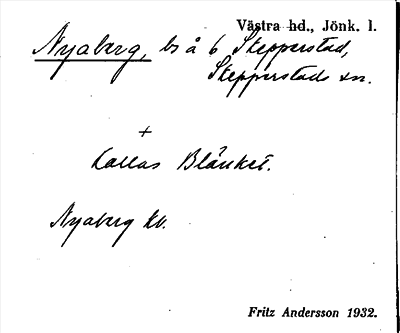 Västra hd., Jönk. l.
Nyaberg, bs å 6 Stepperstad,
Stepperstads sn.
+
Kallas Blänket.
Nyaberg kb.
Fritz Andersson 1932.